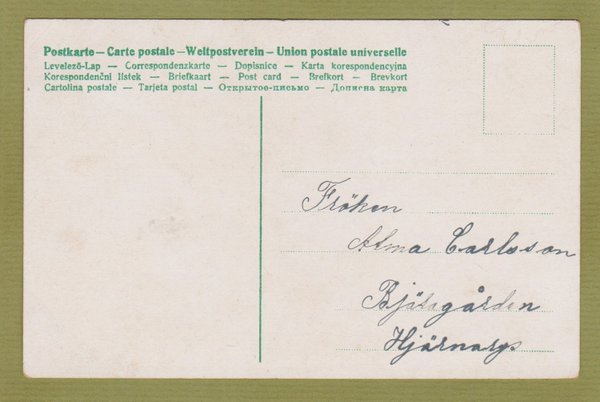 Postkarte — Carte postale — Weltpostverein — Union postale universelle
Levelező-Lap — Correspondenzkarte — Dopisnice — Karta korespondencyjna
Korespondenční lístek — Briefkaart — Post card — Brefkort — Brevkort
Cartolina postale — Tarjeta postal — Открытое-письмо — Дописна карта
Fröken
Alma Carlsson